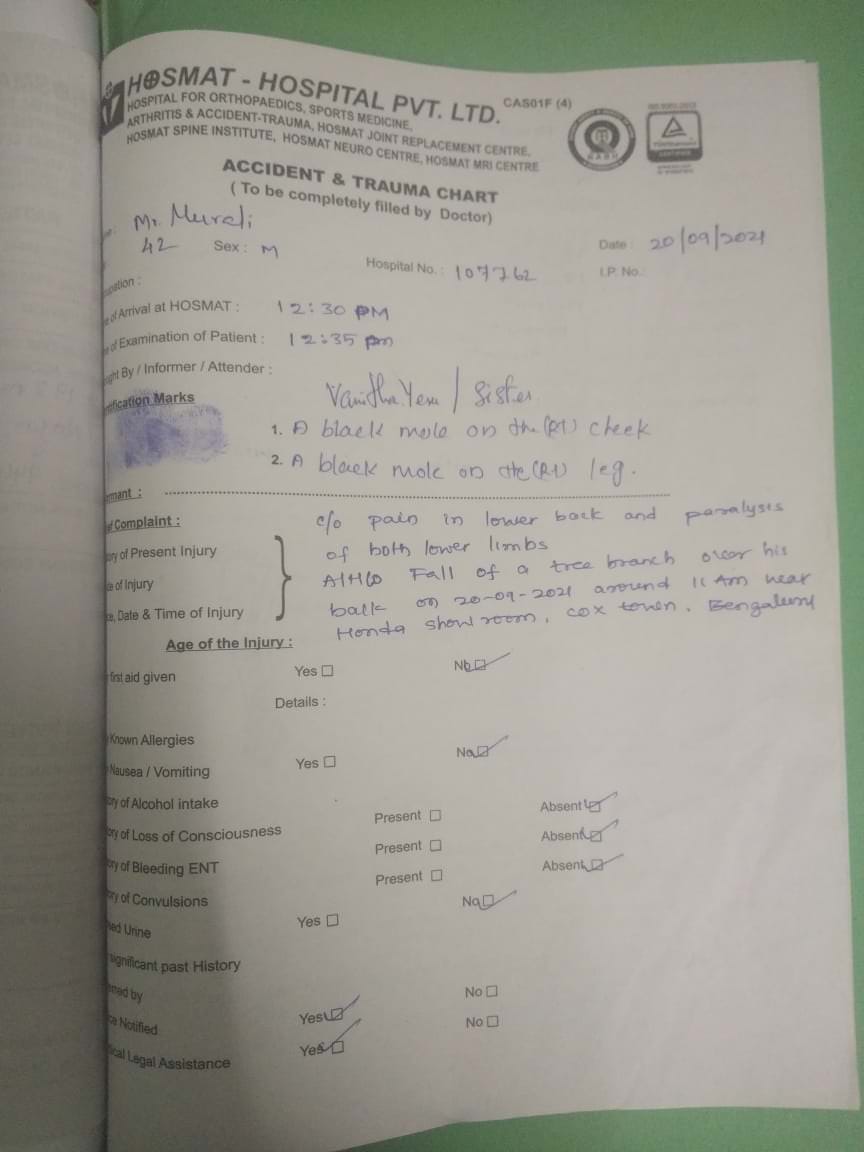 HOSMAT - HOSPITAL PVT. LTD. CAS01F (4)
HOSPITAL FOR ORTHOPAEDICS, SPORTS MEDICINE,
ARTHRITIS & ACCIDENT-TRAUMA, HOSMAT JOINT REPLACEMENT CENTRE,
HOSMAT SPINE INSTITUTE, HOSMAT NEURO CENTRE, HOSMAT MRI CENTRE
ACCIDENT & TRAUMA CHART
( To be completely filled by Doctor)
Mr. Murali
Date : 20/09/2021
42 Sex : M
Hospital No. : 107762 I.P. No.:
of Arrival at HOSMAT : 12:30 PM
of Examination of Patient : 12:35 pm
By / Informer / Attender :
Sister
Marks
1. A black mole on the (Rt) cheek
2. A black mole on the (Rt) leg.
Complaint : c/o pain in lower back and paralysis
of Present Injury of both lower limbs
of Injury Fall of a tree branch over his
Date & Time of Injury back on 20-09-2021 around 11 Am near
Honda showroom, cox town, Bengaluru
Age of the Injury :
first aid given Yes No
Details :
Known Allergies
Nausea / Vomiting Yes No
of Alcohol intake
Present Absent
of Loss of Consciousness Present Absent
of Bleeding ENT Present Absent
of Convulsions
Urine Yes No
significant past History
by
Yes No
Notified
Yes No
Legal Assistance